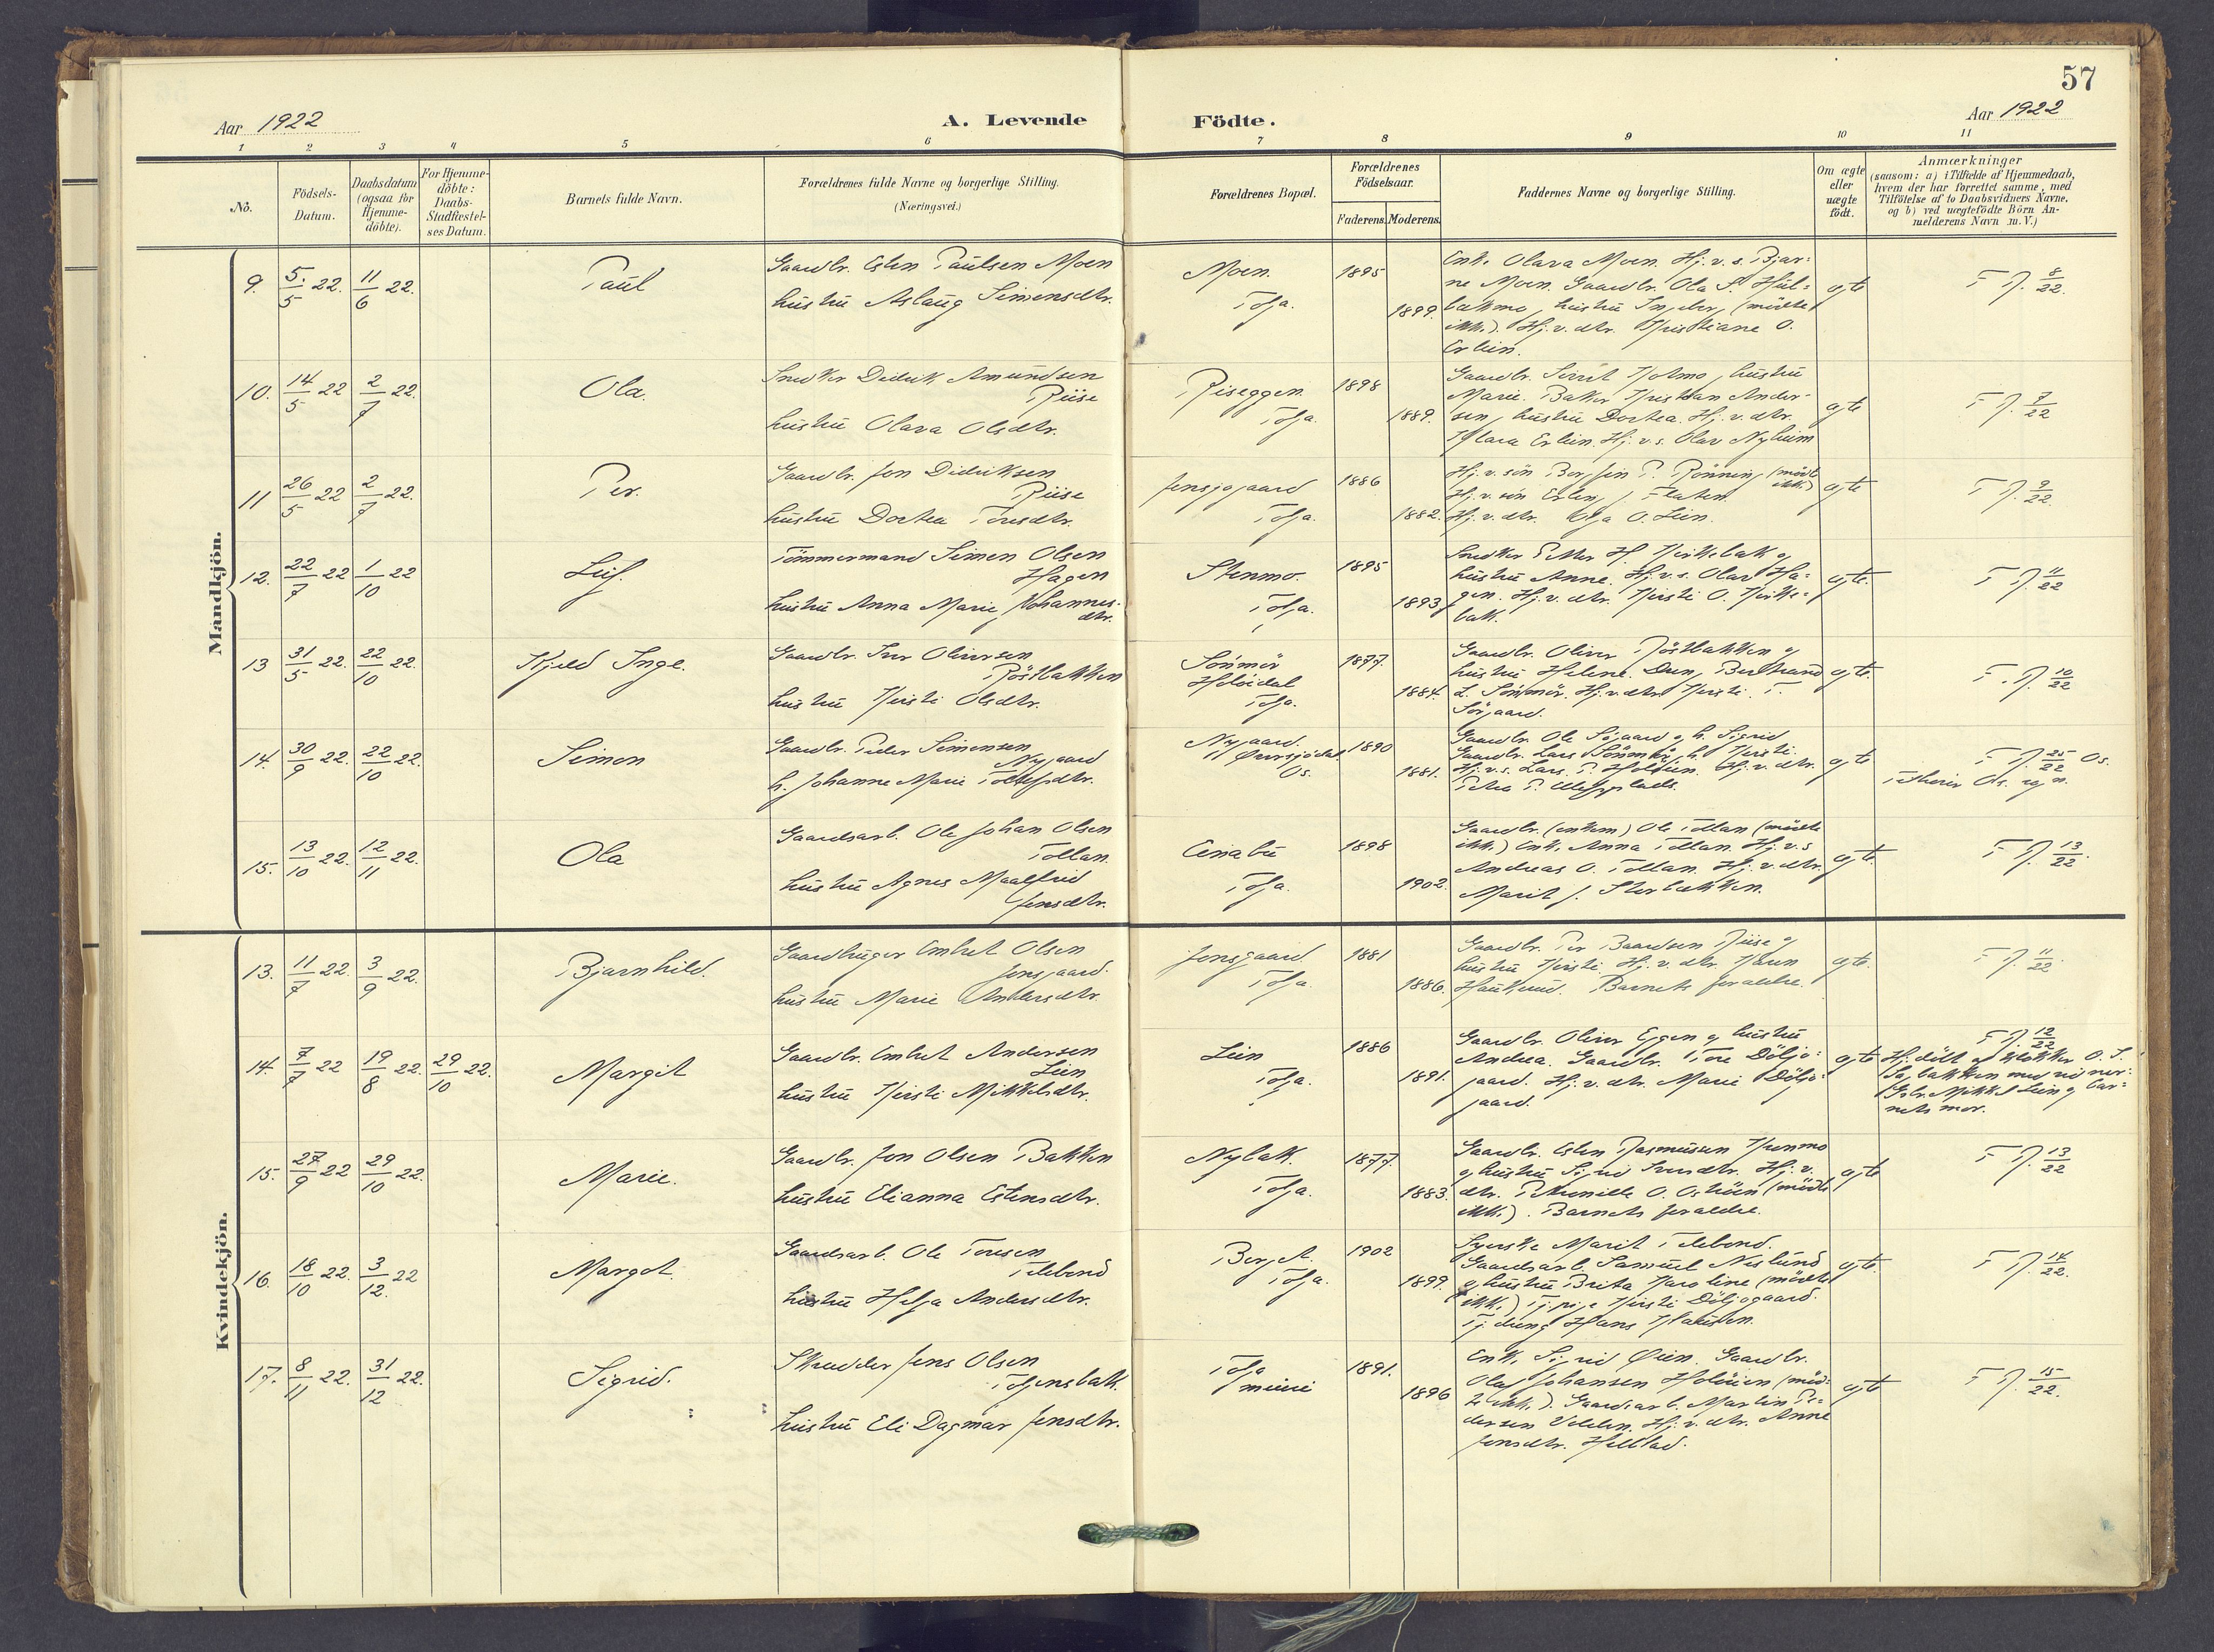 57
Aar 1922
A. Levende Födte.
Aar 1922
1 2 3 4 5 6 7 8 9 10 11
No.
Födsels-Datum.
Daabsdatum (ogsaa for Hjemme-döbte).
For Hjemme-döbte: Daabs-Stadfæstel-ses Datum.
Barnets fulde Navn.
Forældrenes fulde Navne og borgerlige Stilling.
(Næringsvei.)
Forældrenes Bopæl.
Forældrenes Födselsaar.
Faderens. Moderens.
Faddernes Navne og borgerlige Stilling.
Om ægte eller uægte födt.
Anmærkninger
(saasom: a) i Tilfælde af Hjemmedaab,
hvem der har forrettet samme, med
Tilföielse af to Daabsvidners Navne,
og b) ved uægtefödte Börn An-
melderens Navn m. V.)
Mandkjön.
9. 5/5 22. 11/6 22. Paul
Gaardbr. Esten Paulsen Moen
hustru Aslaug Simensdtr.
Moen
Tolga.
1895
1899.
Enke Olava Moen. Hj. v. s. Bjar-
ne Moen. Gaardbr. Ola S. Hul-
bækmo, hustru Ingebor, (mödte
ikke). Hj. v. dtr. Kristiane O.
Erlien.
egte
F. P. 8/22.
10. 14/5 22 2/7 22. Ola.
Snedker Didrik Amundsen
Riise
hustru Olava Olsdtr.
Riseggen
Tolga.
1898
1889.
Gaardbr. Sivert Holmo, hustru
Marie. Baker Kristian Ander-
sen, hustru Dortea. Hj. v. dtr.
Klara Erlien. Hj. v. s. Olav Nyheim
egte
F. P. 7/22
11 26/5 22 2/7 22. Per.
Gaardbr. Jon Didriksen
Riise
hustru Dortea Toresdtr.
Jensjogaard
Tolga.
1886
1882.
Hj. v. sön Bersvin P. Rönning (mödte
ikke)
Hj. v. sön Erling J. Flaten.
Hj. v. dtr. Olga O. Lien.
egte
F. P. 9/22
12. 22/7 22 1/10 22 Leif.
Tömmermand Simen Olsen
Hagen
hustru Anna Marie Johannes-
dtr.
Stenmo.
Tolga.
1895
1893.
Snedker Petter H. Kirkebak og
hustru Anne. Hj. v. s. Olav Ha-
gen. Hj. v. dtr. Kirsti O. Kirke-
bak.
egte.
F. P. 11/22
13 31/5 22. 22/10 22. Kjeld Inge.
Gaardbr. Iver Oliversen
Röstbakken
hustru Kirsti Olsdtr.
Sönmör
Holöidal
Tolga.
1877.
1884.
Gaardbr. Oliver Röstbakken og
hustru Helene. Dreng Bertrand
L. Sönmör. Hj. v. dtr. Kirsti T.
Sörgaard.
egte.
F. P. 10/22
14. 30/9 22. 22/10 22. Simon
Gaardbr. Peder Simensen
Nygaard
h. Johanne Marie Tollefsdtr.
Nygaard
Øversjödal
Os.
1890
1881.
Gaardbr. Ole Sögaard og h. Sigrid
Gaardbr. Lars Sönmör, h. Kirsti.
Hj. v. s. Lars P. Holöien. Hj. v. dtr.
egte
F. P. 25/22 Os.
15. 13/10 22. 12/11 22. Ola
Gaardsarb. Ole Johan Olsen
Tollan.
hustru Agnes Maalfrid
Jensdtr.
Tolga.
1898
1902.
Gaardbr. (enkem) Ole Tollan (mödte
ikke) Enke Anna Tollan. Hj. v. s
Andreas O. Tollan. Hj. v. dtr.
Marit J. Storbækken.
egte.
F. P. 13/22.
Kvindekjön.
13. 11/7 22. 3/9 22. Bjarnhild.
Gaardbruger Embret Olsen
Jensgaard.
hustru Marie Andersdtr.
Jensgaard
Tolga.
1881
1886.
Gaardbr. Per Baardsen Riise og
hustru Kirsti. Hj. v. dtr. Karen
Barnets foraeldre.
egte.
F. P. 11/22.
14. 7/7 22 19/8 22. 29/10 22. Margit
Gaardbr. Embret Andersen
Lien
hustru Kirsti Mikkelsdtr.
Lien
Tolga.
1886
1891.
Gaardbr. Oliver Eggen og hustru
Andrea. Gaardbr. Tore Döljo-
gaard. Hj. v. dtr. Marie Döljo-
gaard.
egte
F. P. 12/22
Hj. döbt af klokker O. S.
Sagbakken med vidner:
Gbr. Mikkel Lien og bar-
nets mor.
15. 27/9 22 29/10 22. Marie.
Gaardbr. Jon Olsen Bakken
hustru Elianna Estensdtr.
Nybak.
Tolga.
1877.
1883.
Gaardbr. Esten Rasmussen
og hustru Sigrid Iversdtr. Hj. v.
dtr. Petronille O. (mödte
ikke). Barnets foraeldre.
egte
F. P. 13/22
16. 18/10 22. 3/12. 22 Margot.
Gaardsarb. Ole Toresen
Telebond
hustru Helga Andersdtr.
Berget.
Tolga.
1902
1899.
Syerske Marit Telebond.
Gaardsarb. Samuel Neslund
og hustru Brita Karoline (mödte
ikke) Tj. pige Kirsti Döljogaard.
Tj. dreng Hans
egte.
F. P. 14/22.
17. 8/11 22. 31/12 22. Sigrid.
Skredder Jens Olsen
Tolgensbak.
hustru Eli Dagmar Jensdtr.
Tolga
1891.
1896
Enke Sigrid Øien. Gaardbr.
Olaf Johansen Holöien (möd-
te ikke). Gaardsarb. Martin Pe-
dersen Hj. v. dtr. Anne
Jensdtr.
egte
F. P. 15/22.